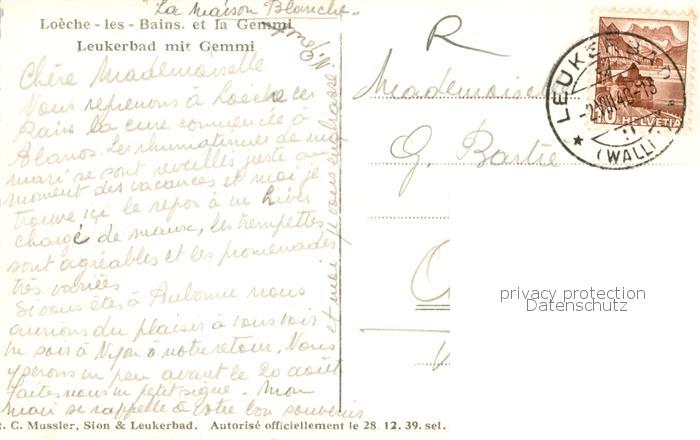 "La Maison Blanche"
Loèche - les - Bains. et la Gemmi
Leukerbad mit Gemmi
Chère Mademoiselle
Nous reprenons à Loèche les
Bains la cure commencée à
Abanos. Les rhumatismes de mon
mari se sont reveillés juste au
moment des vacances et moi je
trouve ici le repos à un hiver
chargé de maux, les trempettes
sont agréables et les promenades
très variées
Si vous êtes à Aubonne nous
aurions du plaisir à vous voir
un soir à Nyon à notre retour. Nous
y serons un peu avant le 20 août
faites nous un petit signe. Mon
mari se rappelle à votre bon souvenir
et moi je vous embrasse
R
Mademoiselle
G. Bastie
LEUKERBAD
(WALLIS)
10 HELVETIA
privacy protection
Datenschutz
t. C. Mussler, Sion & Leukerbad. Autorisé officiellement le 28. 12. 39. sel.